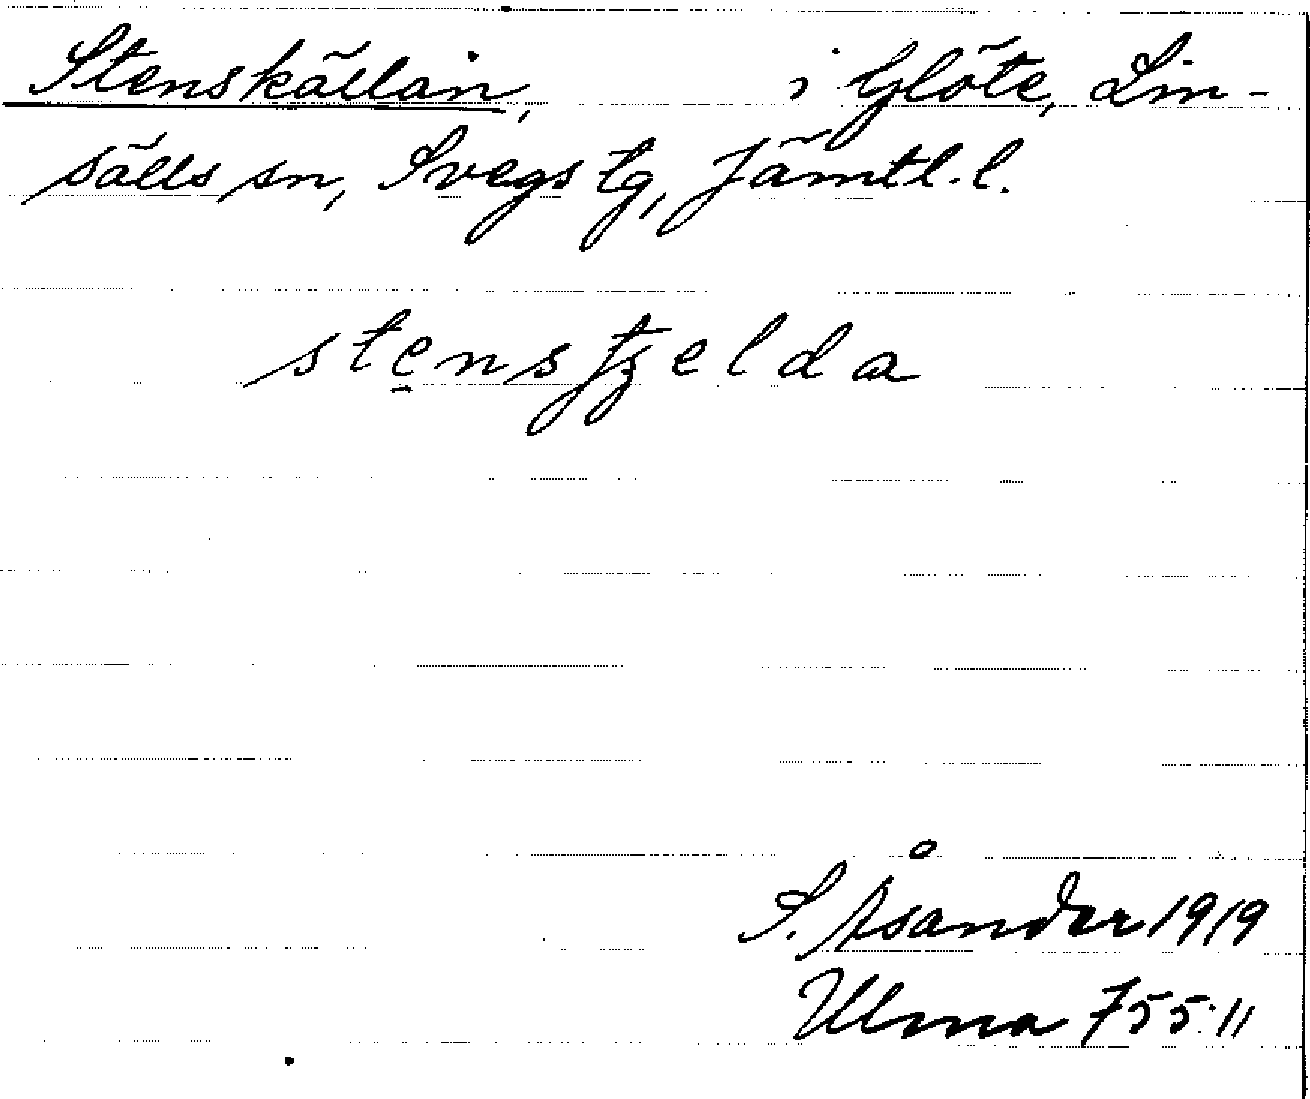 Stenskällan, i Glöte, Lin-
sälls sn, Svegs tg, Jämtl. l.
stenstʒelda
S. Åsander 1919
Ulma 755:11